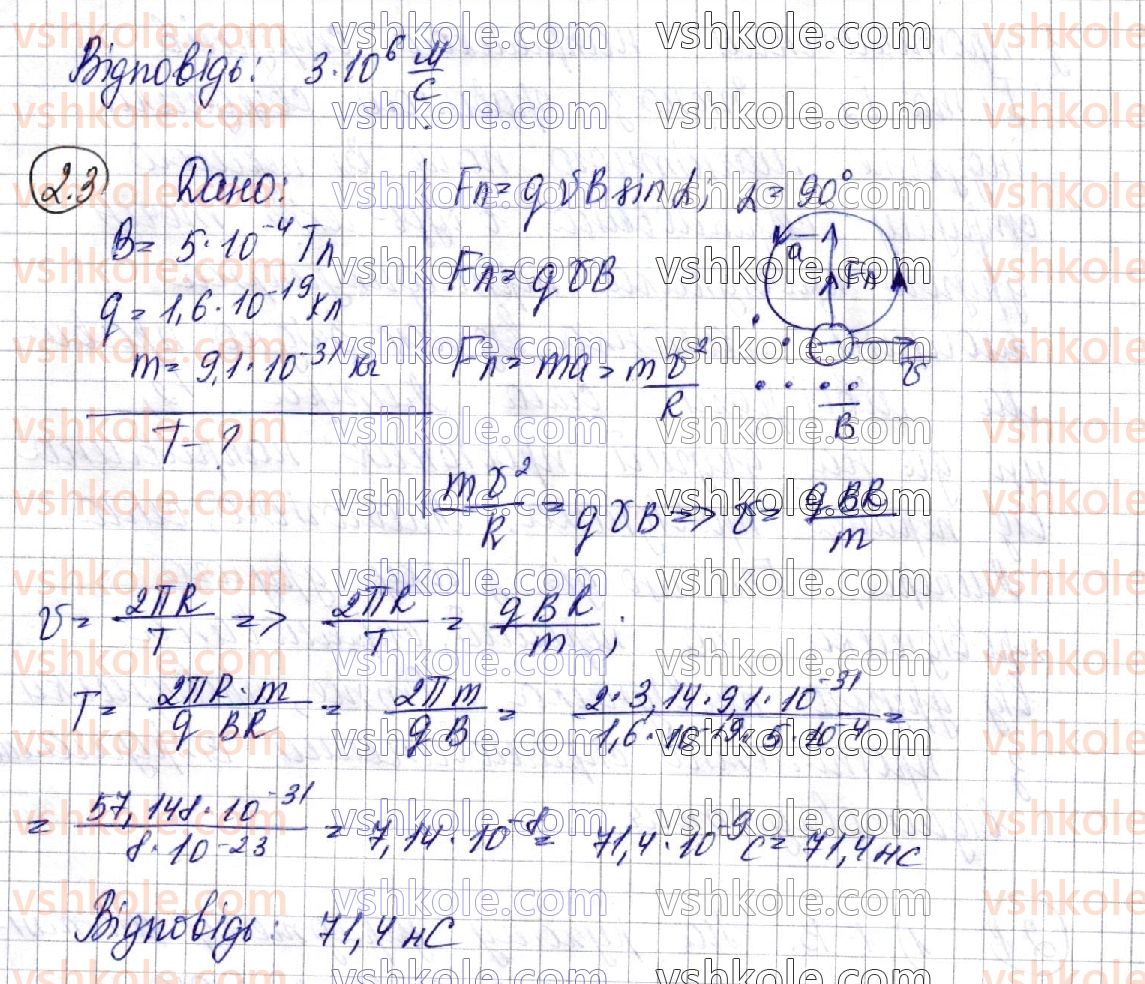 Відповідь: 3·10⁶ м/с
2.3 Дано:
B = 5·10⁻⁴ Тл
q = 1,6·10⁻¹⁹ Кл
m = 9,1·10⁻³¹ кг
T - ?
Fл = qυB sin α; α = 90°
Fл = qυB
Fл = ma = mυ²/R
a Fл υ B
mυ²/R = qυB => υ = qBR/m
υ = 2πR/T => 2πR/T = qBR/m ;
T = 2πR·m/qBR = 2πm/qB = 2·3,14·9,1·10⁻³¹/1,6·10⁻¹⁹·5·10⁻⁴ =
= 57,148·10⁻³¹/8·10⁻²³ = 7,14·10⁻⁸ = 71,4·10⁻⁹ с = 71,4 нс
Відповідь: 71,4 нс
vshkole.com